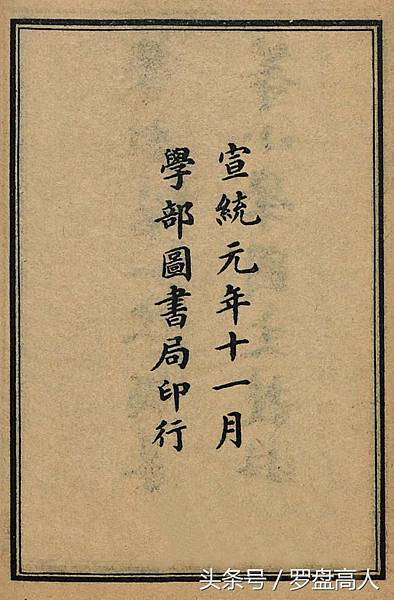 宣統元年十一月
學部圖書局印行
头条号 / 罗盘高人